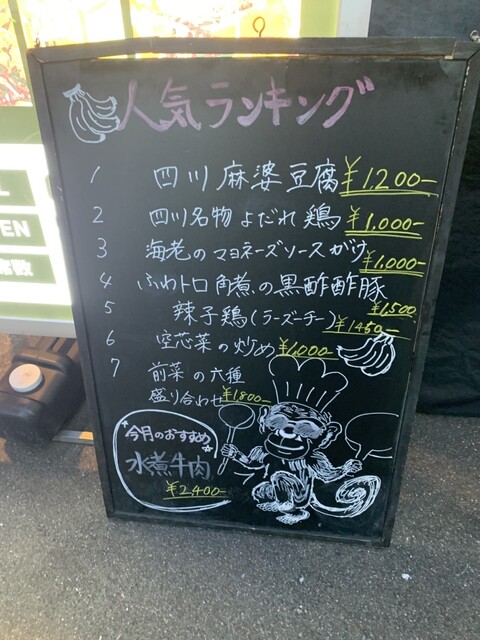 人気ランキング
1 四川麻婆豆腐 ¥1,200-
2 四川名物よだれ鶏 ¥1,000-
3 海老のマヨネーズソースがけ ¥1,000-
4 ふわトロ角煮の黒酢酢豚 ¥1,500
5 辣子鶏(ラーズーチー) ¥1450-
6 空芯菜の炒め ¥1,000-
7 前菜の六種
盛り合わせ ¥1800-
今月のおすすめ
水煮牛肉
¥2,400-
L
EN
席数